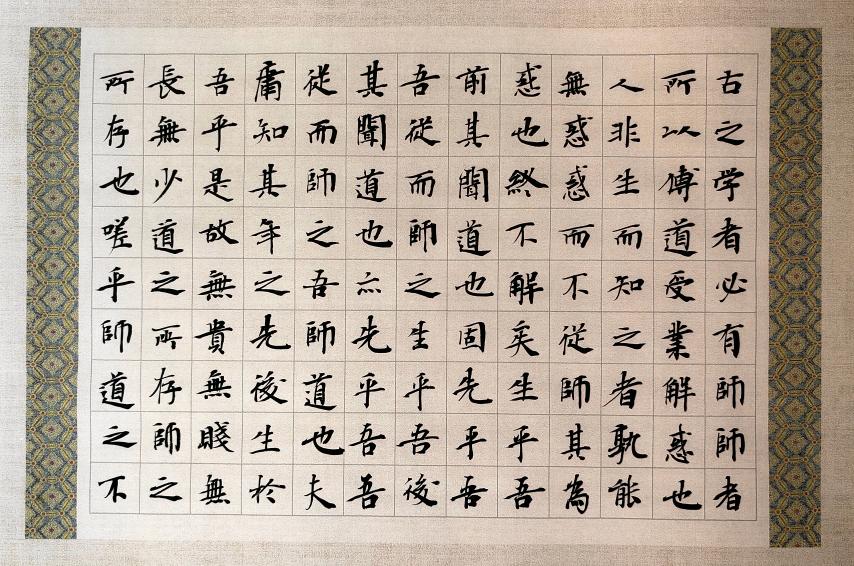 古之学者必有師師者
所以傳道受業解惑也
人非生而知之者孰能
無惑惑而不從師其為
惑也終不解矣生乎吾
前其聞道也固先乎吾
吾從而師之生乎吾後
其聞道也亦先乎吾吾
從而師之吾師道也夫
庸知其年之先後生於
吾乎是故無貴無賤無
長無少道之所存師之
所存也嗟乎師道之不